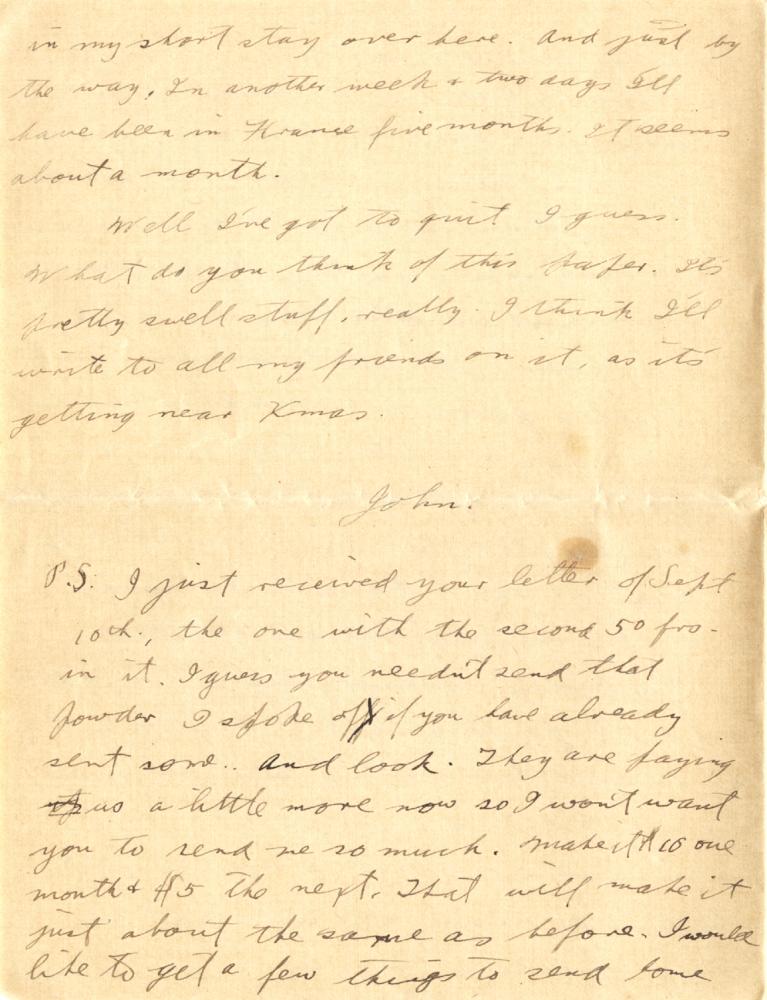 in my short stay over here. And just by
the way. In another week & two days I'll
have been in France five months. It seems
about a month.
Well I've got to quit I guess.
What do you think of this paper. It's
pretty swell stuff, really. I think I'll
write to all my friends on it, as it's
getting near Xmas.
John.
P.S. I just received your letter of Sept
10th., the one with the second 50 frs.
in it. I guess you needn't send that
powder I spoke of if you have already
sent some.. And look. They are paying
us a little more now so I wont want
you to send me so much. Make it $10 one
month & $5 the next. That will make it
just about the same as before. I would
like to get a few things to send home